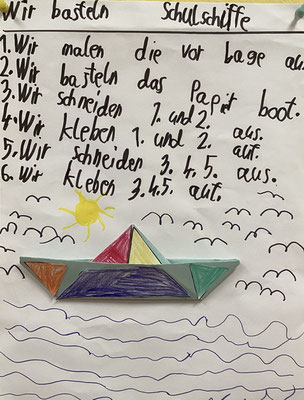 Wir basteln Schulschiffe
1. Wir malen die vor lage au
2. Wir basteln das Papier boot.
3. Wir schneiden 1. und 2. aus.
4. Wir kleben 1. und 2. auf.
5. Wir schneiden 3. 4. 5. aus.
6. Wir kleben 3. 4. 5. auf.